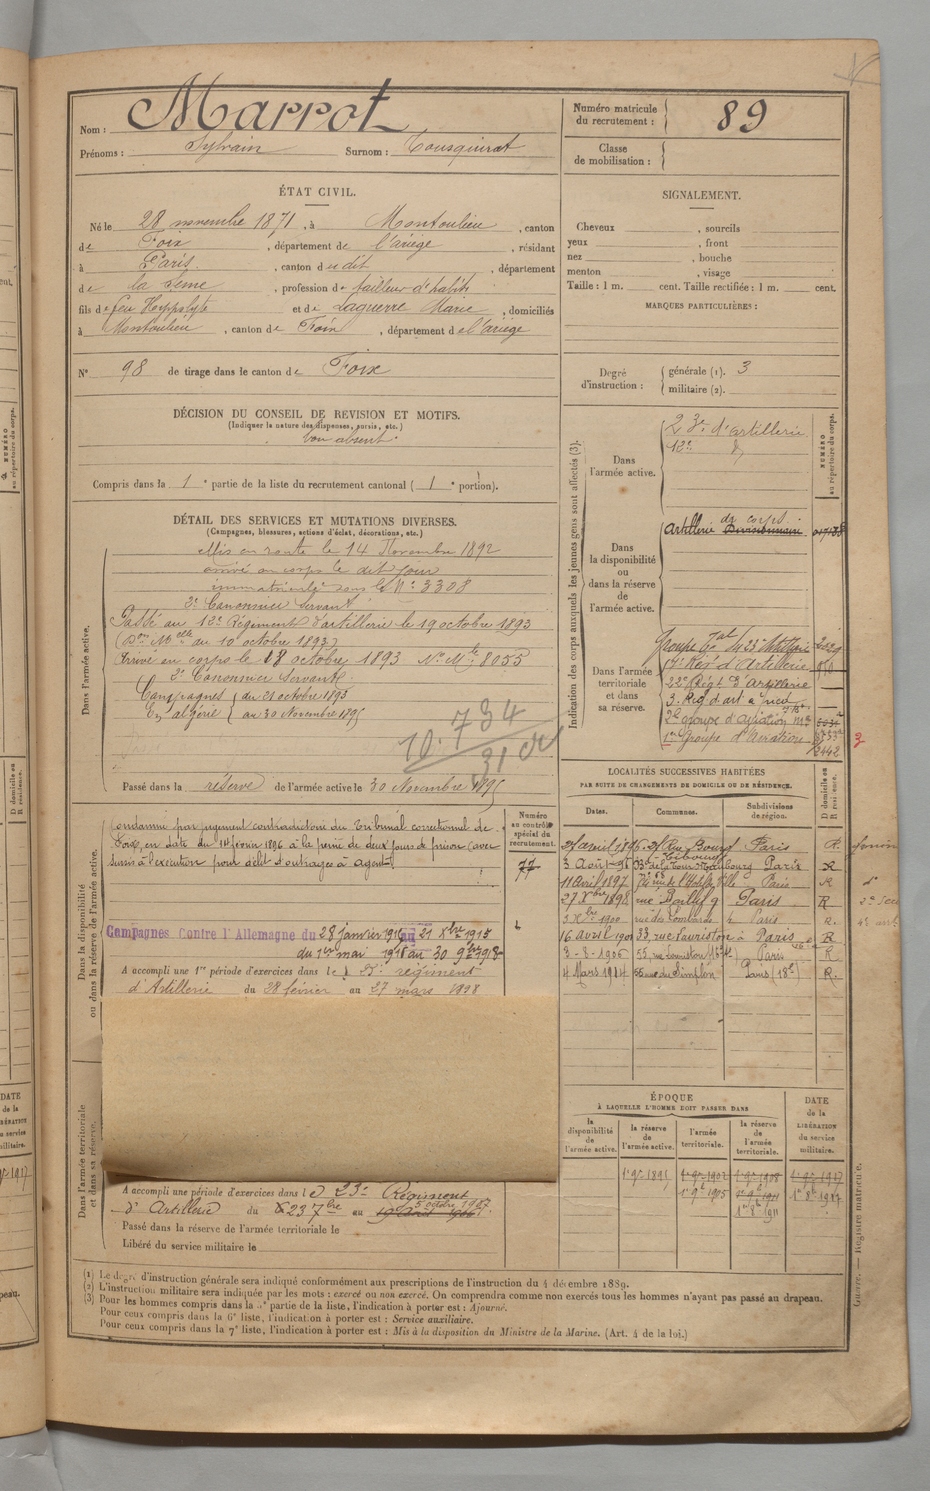 Nom : Marrot
Prénoms : Sylvain Surnom : Tousquirat
Numéro matricule du recrutement : 89
Classe de mobilisation :
ÉTAT CIVIL.
Né le 28 novembre 1871, à Montoulieu, canton
de Foix, département de l'ariège, résidant
à Paris, canton dudit, département
de la Seine, profession de tailleur d'habits
fils de feu Hyppolyte et de Laguerre Marie, domiciliés
à Montoulieu, canton de Foix, département de l'ariège
N° 98 de tirage dans le canton de Foix
DÉCISION DU CONSEIL DE RÉVISION ET MOTIFS.
(Indiquer la nature des dispenses, sursis, etc.)
bon absent
Compris dans la 1e partie de la liste du recrutement cantonal (1e portion).
DÉTAIL DES SERVICES ET MUTATIONS DIVERSES.
(Campagnes, blessures, actions d'éclat, décorations, etc.)
Dans l'armée active.
Mis en route le 14 Novembre 1892
arrivé au corps le dit jour
immatriculé sous le N° 3308
2e Canonnier Servant
Passé au 12e Régiment d'artillerie le 19 octobre 1893
au 10 octobre 1893)
Arrivé au corps le 18 octobre 1893 No Mle 8055
2e Canonnier Servant
Campagnes du 21 octobre 1893
En algérie au 30 Novembre 1895
10.734
31
Passé dans la réserve de l'armée active le 30 Novembre 1895
Dans la disponibilité ou dans la réserve de l'armée active.
Numéro au contrôle spécial du recrutement.
77
Condamné par jugement contradictoire du Tribunal correctionnel de
Foix en date du 14 février 1896 à la peine de deux jours de prison (avec
sursis à l'exécution pour délit d'outrages à agent)
Campagnes Contre l'Allemagne du 28 janvier 1915 au 21 Xbre 1915
du 1er mai 1918 au 30 9bre 1918
A accompli une 1re période d'exercices dans le régiment
d'Artillerie du 28 février au 27 mars 1898
Dans l'armée territoriale et dans sa réserve.
A accompli une période d'exercices dans le 23e Régiment
d'Artillerie du 23 7bre au 5 octobre 1907
Passé dans la réserve de l'armée territoriale le
Libéré du service militaire le
SIGNALEMENT.
Cheveux , sourcils
yeux , front
nez , bouche
menton , visage
Taille : 1 m. cent. Taille rectifiée : 1 m. cent.
MARQUES PARTICULIÈRES :
Degré d'instruction : générale (1). 3
militaire (2).
Indication des corps auxquels les jeunes gens sont affectés (3).
NUMÉRO au répertoire du corps.
Dans l'armée active.
23e d'artillerie
12e d°
Dans la disponibilité ou dans la réserve de l'armée active.
de corps
Artillerie Divisionnaire
Dans l'armée territoriale et dans sa réserve.
Groupe Tal du 23e Artillerie
Reg d'Artillerie
22e Régt d'Artillerie
3. Reg d'art à pied
2e groupe d'aviation
1er Groupe d'Aviation 2442
3
LOCALITÉS SUCCESSIVES HABITÉES
PAR SUITE DE CHANGEMENTS DE DOMICILE OU DE RÉSIDENCE.
Dates. Communes. Subdivisions de région. D domicile ou R résidence.
avril 1896 Paris R.
3 Août 96 Paris R
11 avril 1897 Rue de l'Hôtel de Ville Paris R
27 Xbre 1898 rue Bailly 9 Paris R
3 Xbre 1900 rue des Lombards Paris R.
16 avril 33, rue Lauriston à Paris R
3-8-1906 55, rue Lauriston Paris R
4 Mars 1914 66 rue du Simplon Paris (18e) R.
ÉPOQUE
À LAQUELLE L'HOMME DOIT PASSER DANS
la disponibilité de l'armée active. la réserve de l'armée active. l'armée territoriale. la réserve de l'armée territoriale.
DATE de la LIBÉRATION du service militaire.
1er 9bre 1895
1er 9bre 1905
Guerre. — Registre matricule.
(1) Le degré d'instruction générale sera indiqué conformément aux prescriptions de l'instruction du 4 décembre 1889.
(2) L'instruction militaire sera indiquée par les mots : exercé ou non exercé. On comprendra comme non exercés tous les hommes n'ayant pas passé au drapeau.
(3) Pour les hommes compris dans la 5e partie de la liste, l'indication à porter est : Ajourné.
Pour ceux compris dans la 6e liste, l'indication à porter est : Service auxiliaire.
Pour ceux compris dans la 7e liste, l'indication à porter est : Mis à la disposition du Ministre de la Marine. (Art. 4 de la loi.)